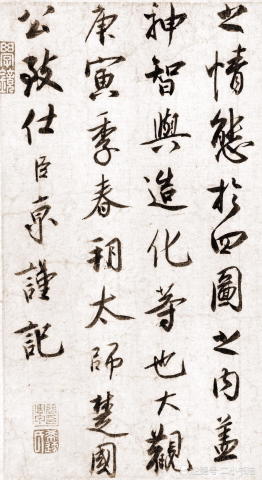 之情態於四圖之内蓋
神智與造化等也大觀
庚寅季春朔太師楚國
公致仕臣京謹記